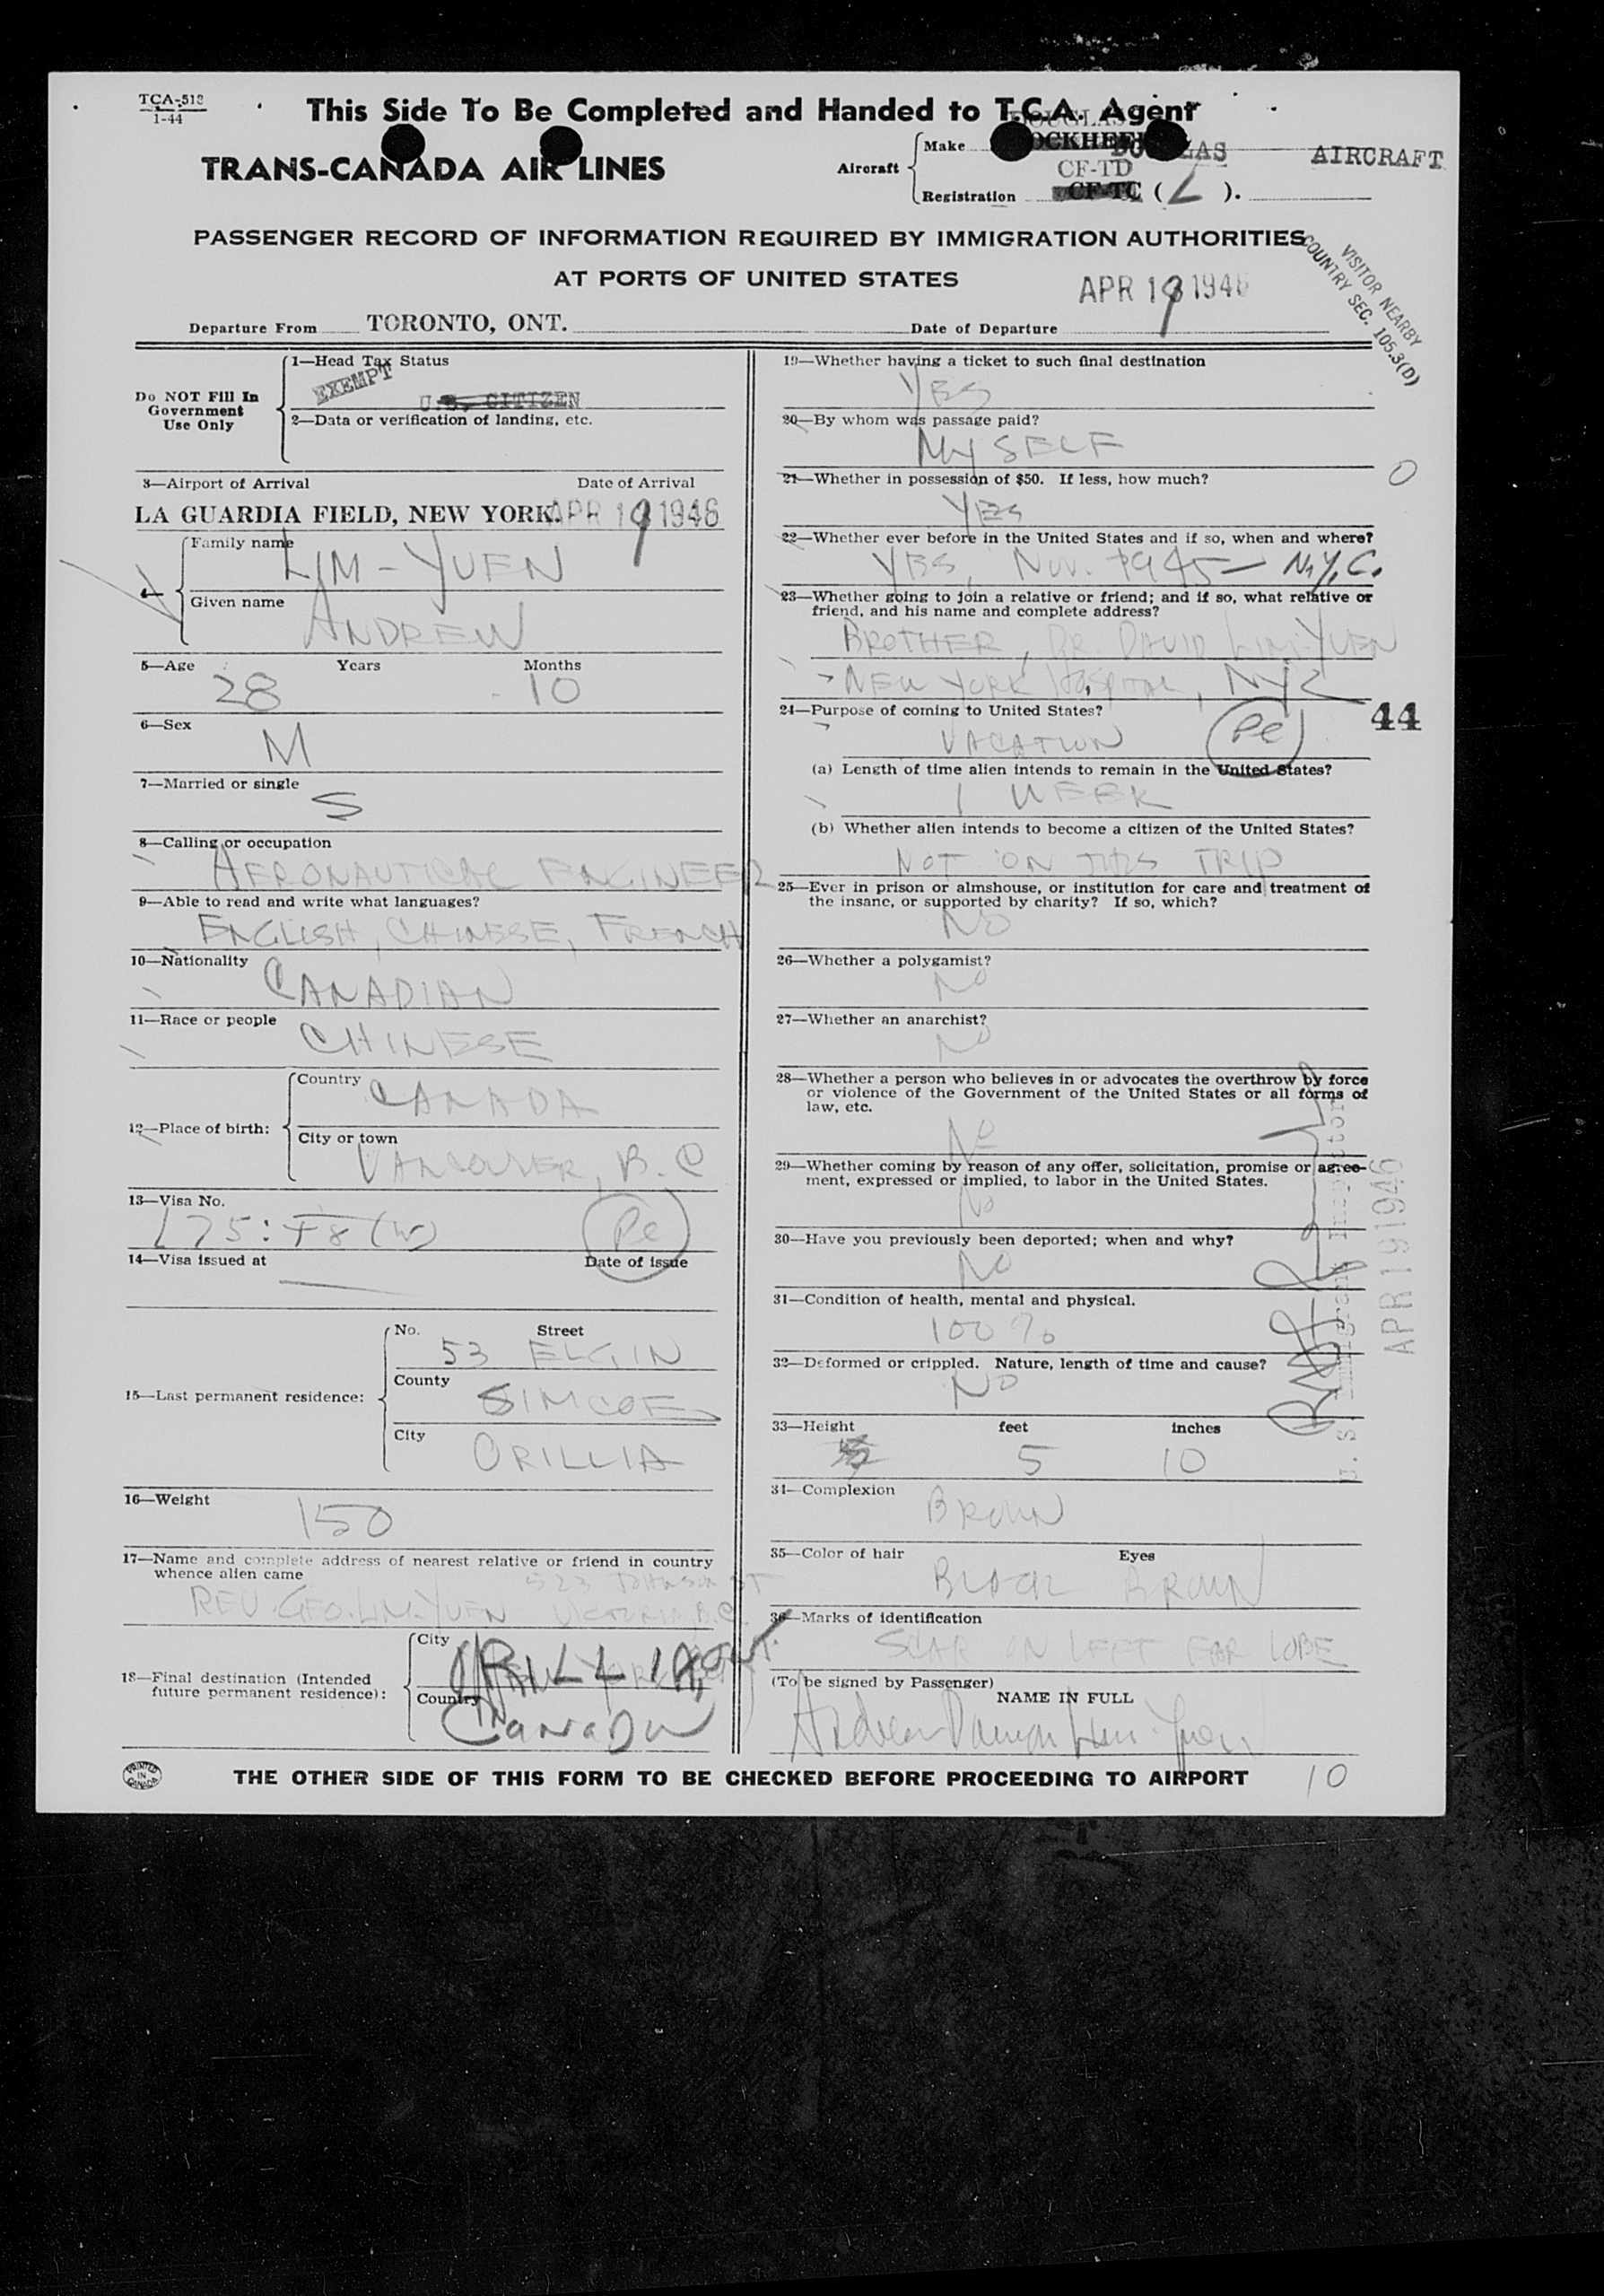 TCA-518
1-44
This Side To Be Completed and Handed to T.C.A. Agent
TRANS-CANADA AIR LINES
Aircraft
Make DOUGLAS AIRCRAFT
CF-TD
Registration CF-TC (L).
PASSENGER RECORD OF INFORMATION REQUIRED BY IMMIGRATION AUTHORITIES
AT PORTS OF UNITED STATES
APR 19 1946
VISITOR NEARBY
COUNTRY SEC. 105.3(D)
Departure From TORONTO, ONT. Date of Departure
Do NOT Fill In
Government
Use Only
1—Head Tax Status
EXEMPT
U.S. CITIZEN
2—Data or verification of landing, etc.
3—Airport of Arrival Date of Arrival
LA GUARDIA FIELD, NEW YORK. APR 19 1946
4—
Family name
LIM-YUEN
Given name
ANDREW
5—Age Years Months
28 10
6—Sex
M
7—Married or single
S
8—Calling or occupation
AERONAUTICAL ENGINEER
9—Able to read and write what languages?
ENGLISH, CHINESE, FRENCH
10—Nationality
CANADIAN
11—Race or people
CHINESE
12—Place of birth:
Country
CANADA
City or town
VANCOUVER, B.C
13—Visa No.
175: F8 (W) Pe
14—Visa issued at Date of issue
15—Last permanent residence:
No. Street
53 ELGIN
County
SIMCOE
City
ORILLIA
16—Weight
150
17—Name and complete address of nearest relative or friend in country
whence alien came
523 JOHNSON ST
REV. GEO. LIM-YUEN VICTORIA B.C.
18—Final destination (Intended
future permanent residence):
City
ORILLIA ONT.
Country
CANADA
19—Whether having a ticket to such final destination
YES
20—By whom was passage paid?
MYSELF
21—Whether in possession of $50. If less, how much?
YES
0
22—Whether ever before in the United States and if so, when and where?
YES, NOV. 1945 — N.Y.C.
23—Whether going to join a relative or friend; and if so, what relative or
friend, and his name and complete address?
BROTHER, DR. DAVID LIM-YUEN
NEW YORK HOSPITAL, NYC
24—Purpose of coming to United States?
44
VACATION Pe
(a) Length of time alien intends to remain in the United States?
1 WEEK
(b) Whether alien intends to become a citizen of the United States?
NOT ON THIS TRIP
25—Ever in prison or almshouse, or institution for care and treatment of
the insane, or supported by charity? If so, which?
NO
26—Whether a polygamist?
NO
27—Whether an anarchist?
NO
28—Whether a person who believes in or advocates the overthrow by force
or violence of the Government of the United States or all forms of
law, etc.
NO
29—Whether coming by reason of any offer, solicitation, promise or agree-
ment, expressed or implied, to labor in the United States.
NO
30—Have you previously been deported; when and why?
NO
31—Condition of health, mental and physical.
100%
32—Deformed or crippled. Nature, length of time and cause?
NO
33—Height feet inches
5 10
34—Complexion
BROWN
35—Color of hair Eyes
BLACK BROWN
36—Marks of identification
SCAR ON LEFT EAR LOBE
(To be signed by Passenger)
NAME IN FULL
U. S. Immigrant Inspector
APR 19 1946
PRINTED
IN
CANADA
THE OTHER SIDE OF THIS FORM TO BE CHECKED BEFORE PROCEEDING TO AIRPORT
10